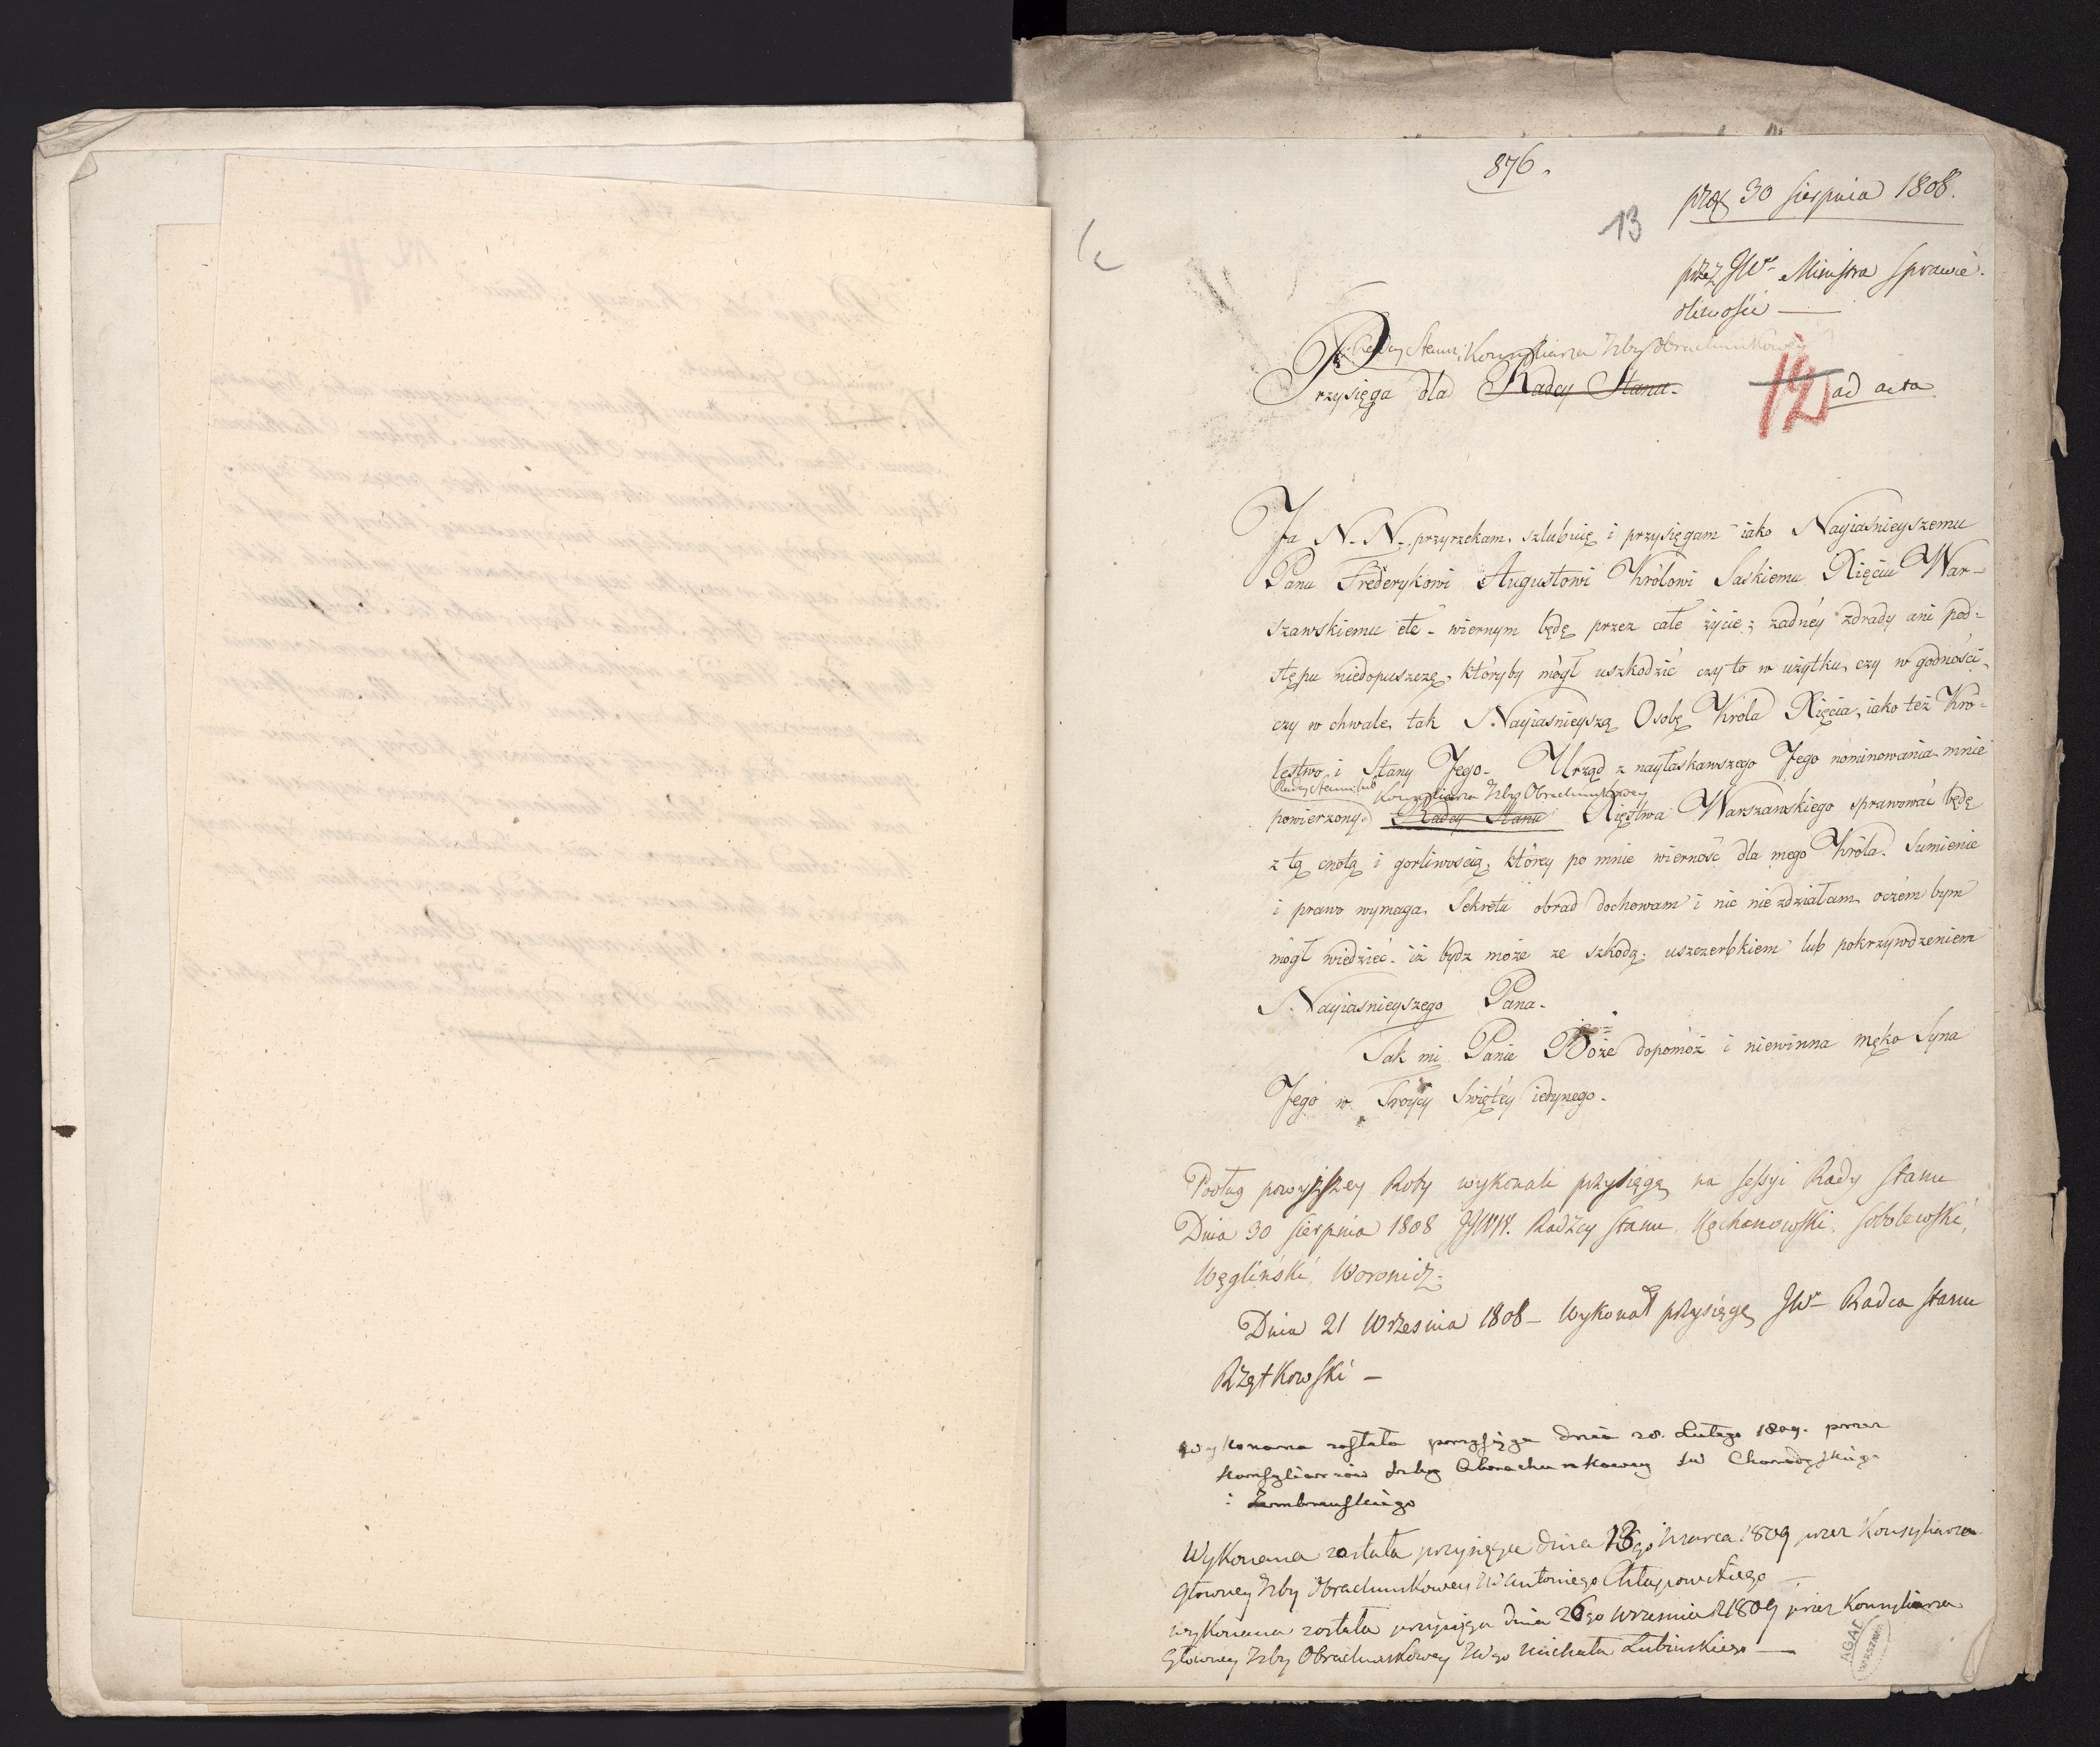 876.
prez 30 Sierpnia 1808.
13
przez JWo Ministra Sprawie-
dliwości —
Radcy Stanu i Konsyliarza Izby Obrachunkowey
Przysięga dla Radcy Stanu.
12
ad acta
Ja N. N. przyrzekam, szlubuię i przysięgam iako Nayiaśnieyszemu
Panu Frederykowi Augustowi Królowi Saskiemu Xięciu War-
szawskiemu etc. wiernym będę przez całe życie; żadnéy zdrady ani pod-
stępu niedopuszczę, któryby mógł uszkodzić czy to w użytku, czy w godności,
czy w chwale, tak Nayiaśnieyszą Osobę Króla Xięcia, iako też Kró-
lestwo i Stany Jego. Urząd z nayłaskawszego Jego nominowania mnie
Radcy Stanu lub Konsyliarza Izby Obrachunkowey
powierzony Radcy Stanu Xięstwa Warszawskiego sprawować będę
z tą cnotą i gorliwością, którey po mnie wierność dla mego Króla, Sumienie
i prawo wymaga, Sekretu obrad dochowam i nic nie zdziałam, oczém bym
mógł wiedzieć, iż bydz może ze szkodą, uszczerbkiem lub pokrzywdzeniem
Nayiaśnieyszego Pana.
Tak mi Panie Boże dopomóż i niewinna męko Syna
Jego w Troycy Świętéy iedynego.
Podług powyższey Roty wykonali przysięgę na sessyi Rady Stanu
Dnia 30 Sierpnia 1808 JJWW. Radźcy Stanu Kochanowski, Sobolewski,
Węgliński, Woronicz.
Dnia 21 Września 1808 — Wykonał przysięgę JWo Radca Stanu
Rzętkowski —
Wykonana została przysięga dnia 28. Lutego 1809. przez
Konsyliarzów Izby Obrachunkowey
i Zembrzuskiego
Wykonana została przysięga dnia 13go Marca 1809 przez Konsyliarza
Głowney Izby Obrachunkowey W Antoniego Chłapowskiego —
wykonana została przysięga dnia 26go Września 1809 przez Konsyliarza
Głowney Izby Obrachunkowey Wgo Michała Lubinskiego —
AGAD
WARSZAWA